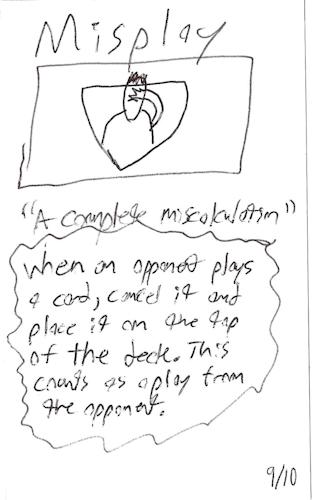 Misplay
"A complete miscalculation"
When an opponent plays
a card, cancel it and
place it on the top
of the deck. This
counts as a play from
the opponent.
9/10